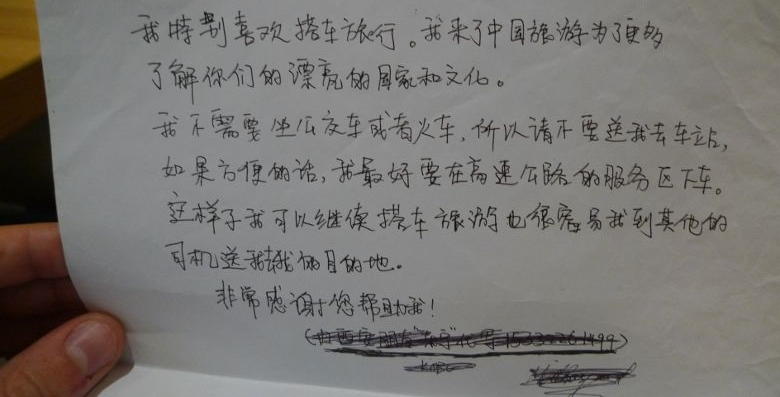 我特别喜欢搭车旅行。我来了中国旅游为了更多
了解你们的漂亮的国家和文化。
我不需要坐公交车或者火车,所以请不要送我去车站,
如果方便的话,我最好要在高速公路的服务区下车。
这样子我可以继续搭车旅游也很容易找到其他的
司机送我去我的目的地。
非常感谢您帮助我!